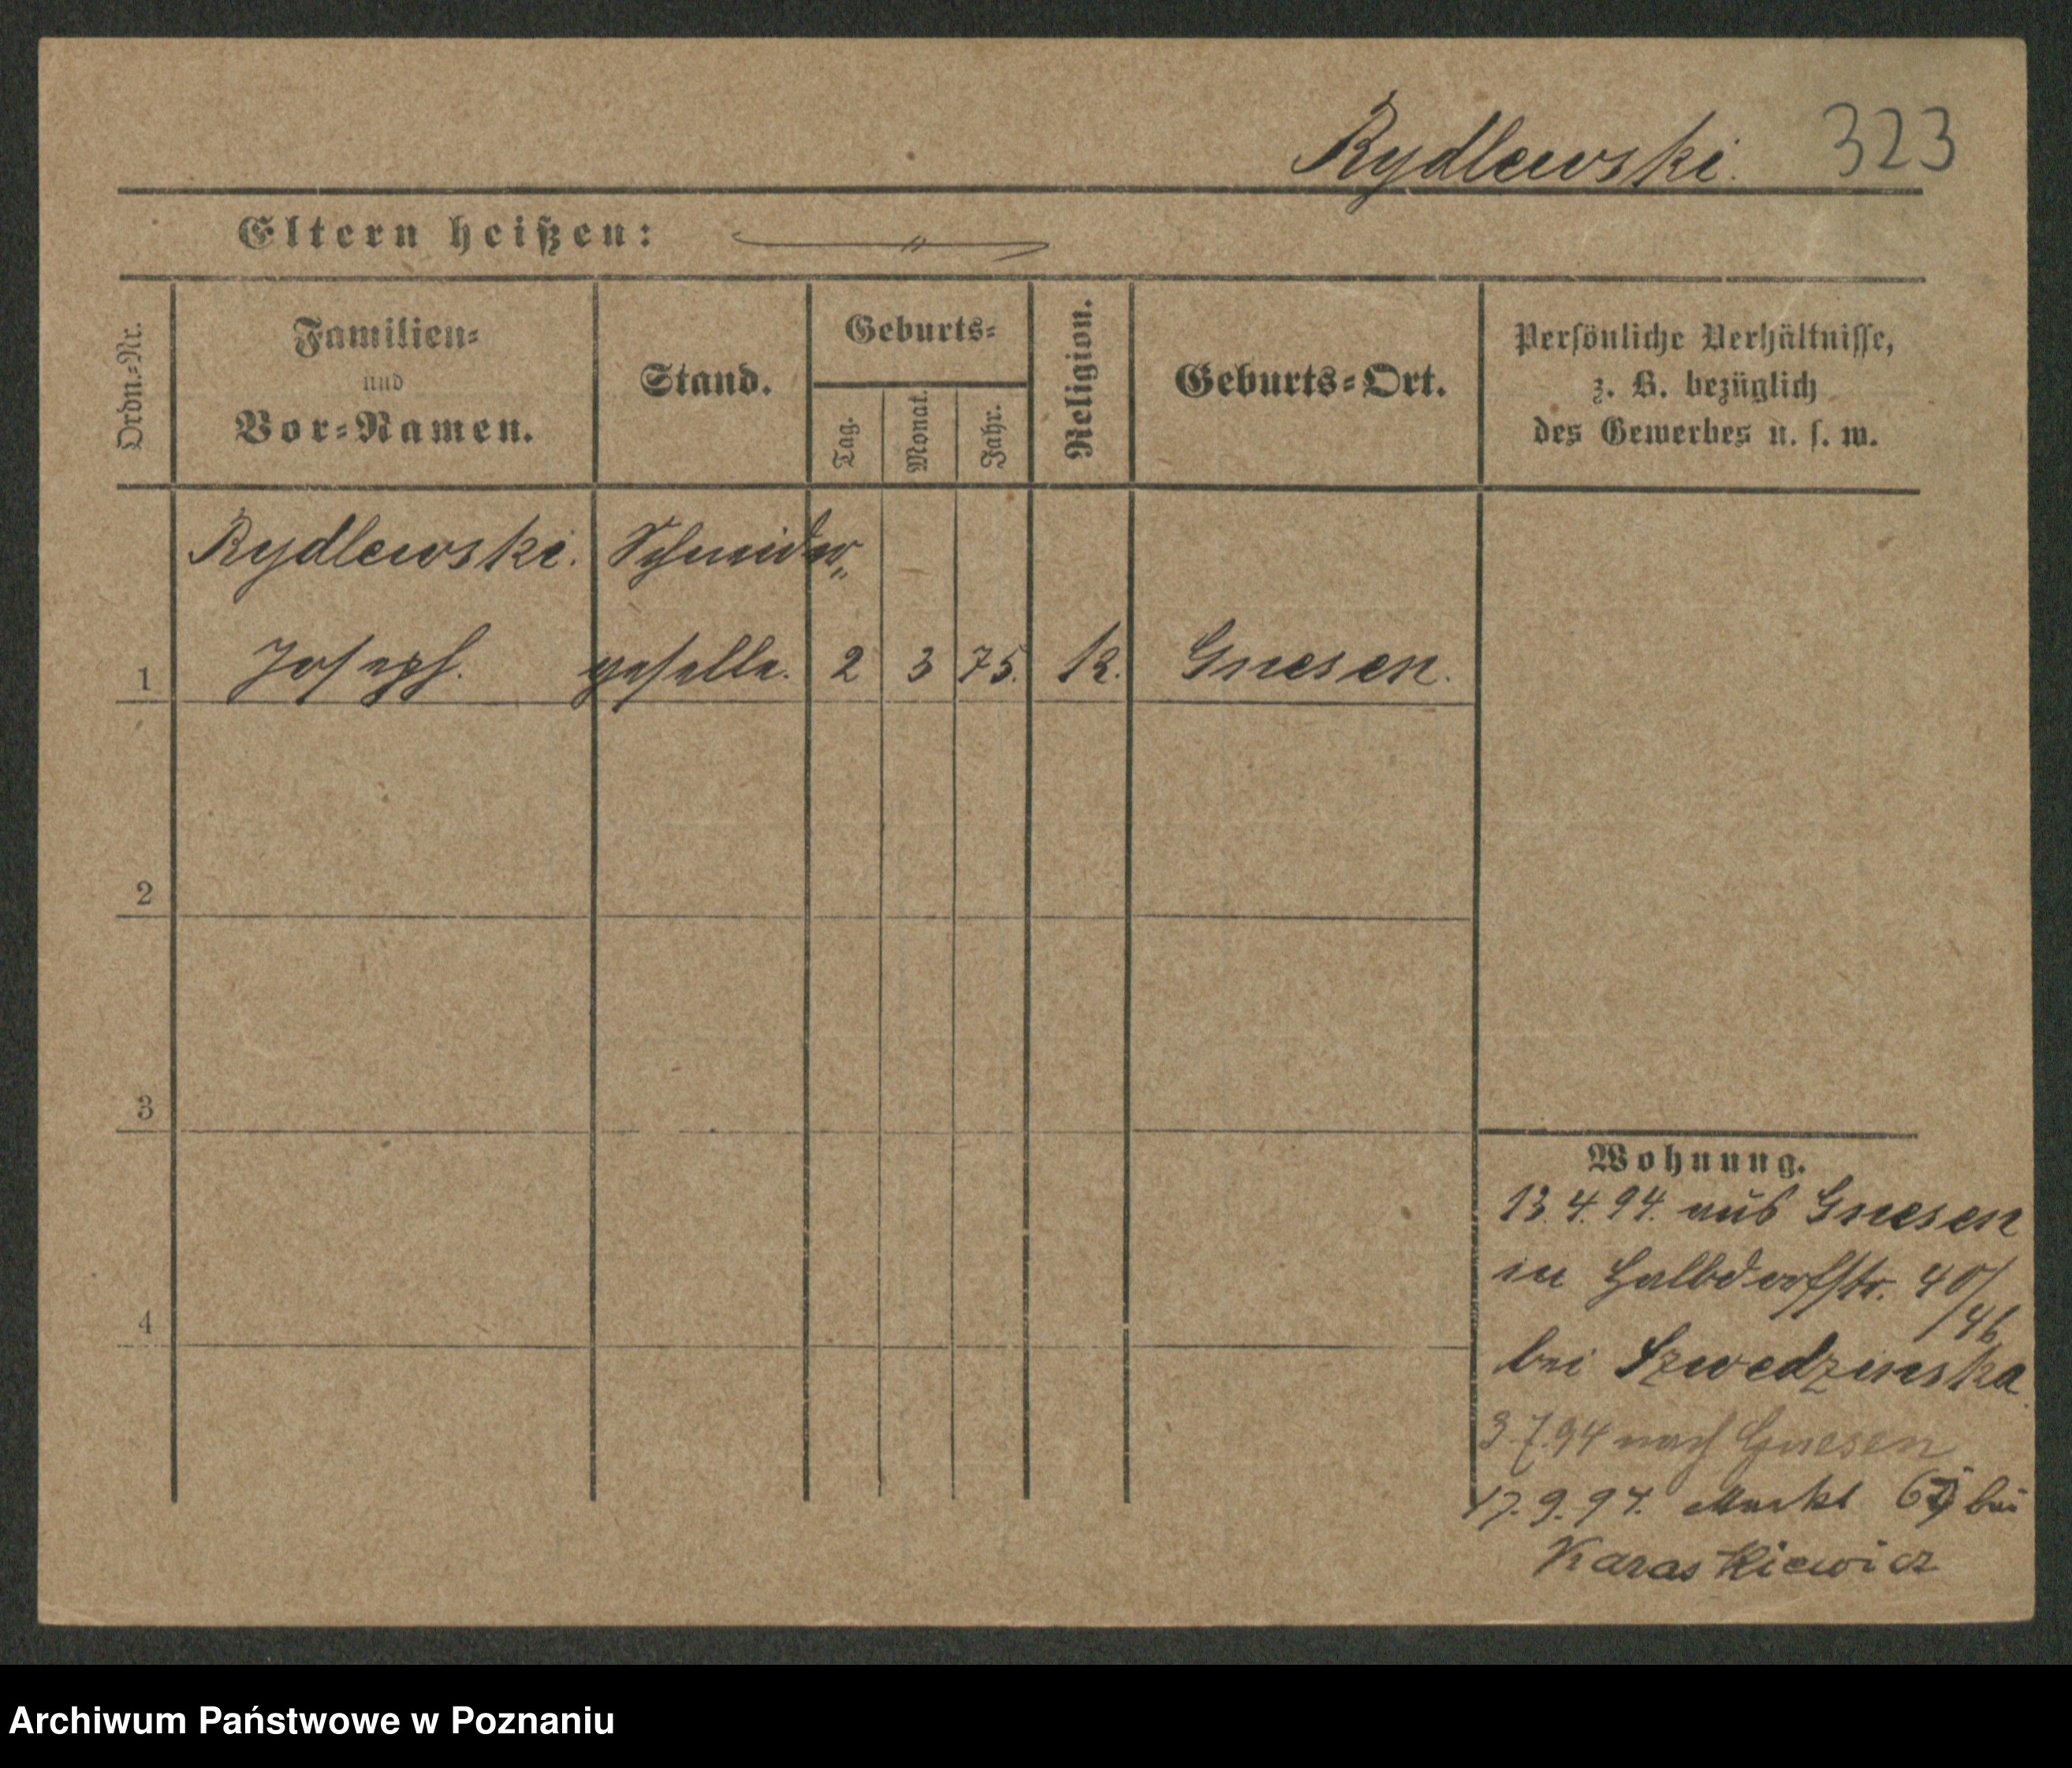 Rydlewski. 323
Eltern heißen:
Ordn.-Nr.
Familien-
und
Vor-Namen.
Stand.
Geburts-
Tag.
Monat.
Jahr.
Religion.
Geburts-Ort.
Persönliche Verhältnisse,
z. B. bezüglich
des Gewerbes u. s. w.
Rydlewski. Schneider„
1 Joseph. geselle. 2 3 75. k. Gnesen.
2
3
4
Wohnung.
13.4.94. aus Gnesen
in Halbdorfstr. 40/
/46
bei Szwedzinska
3.7.94 nach Gnesen
17.9.94. Markt bei
Karaskiewicz
Archiwum Państwowe w Poznaniu